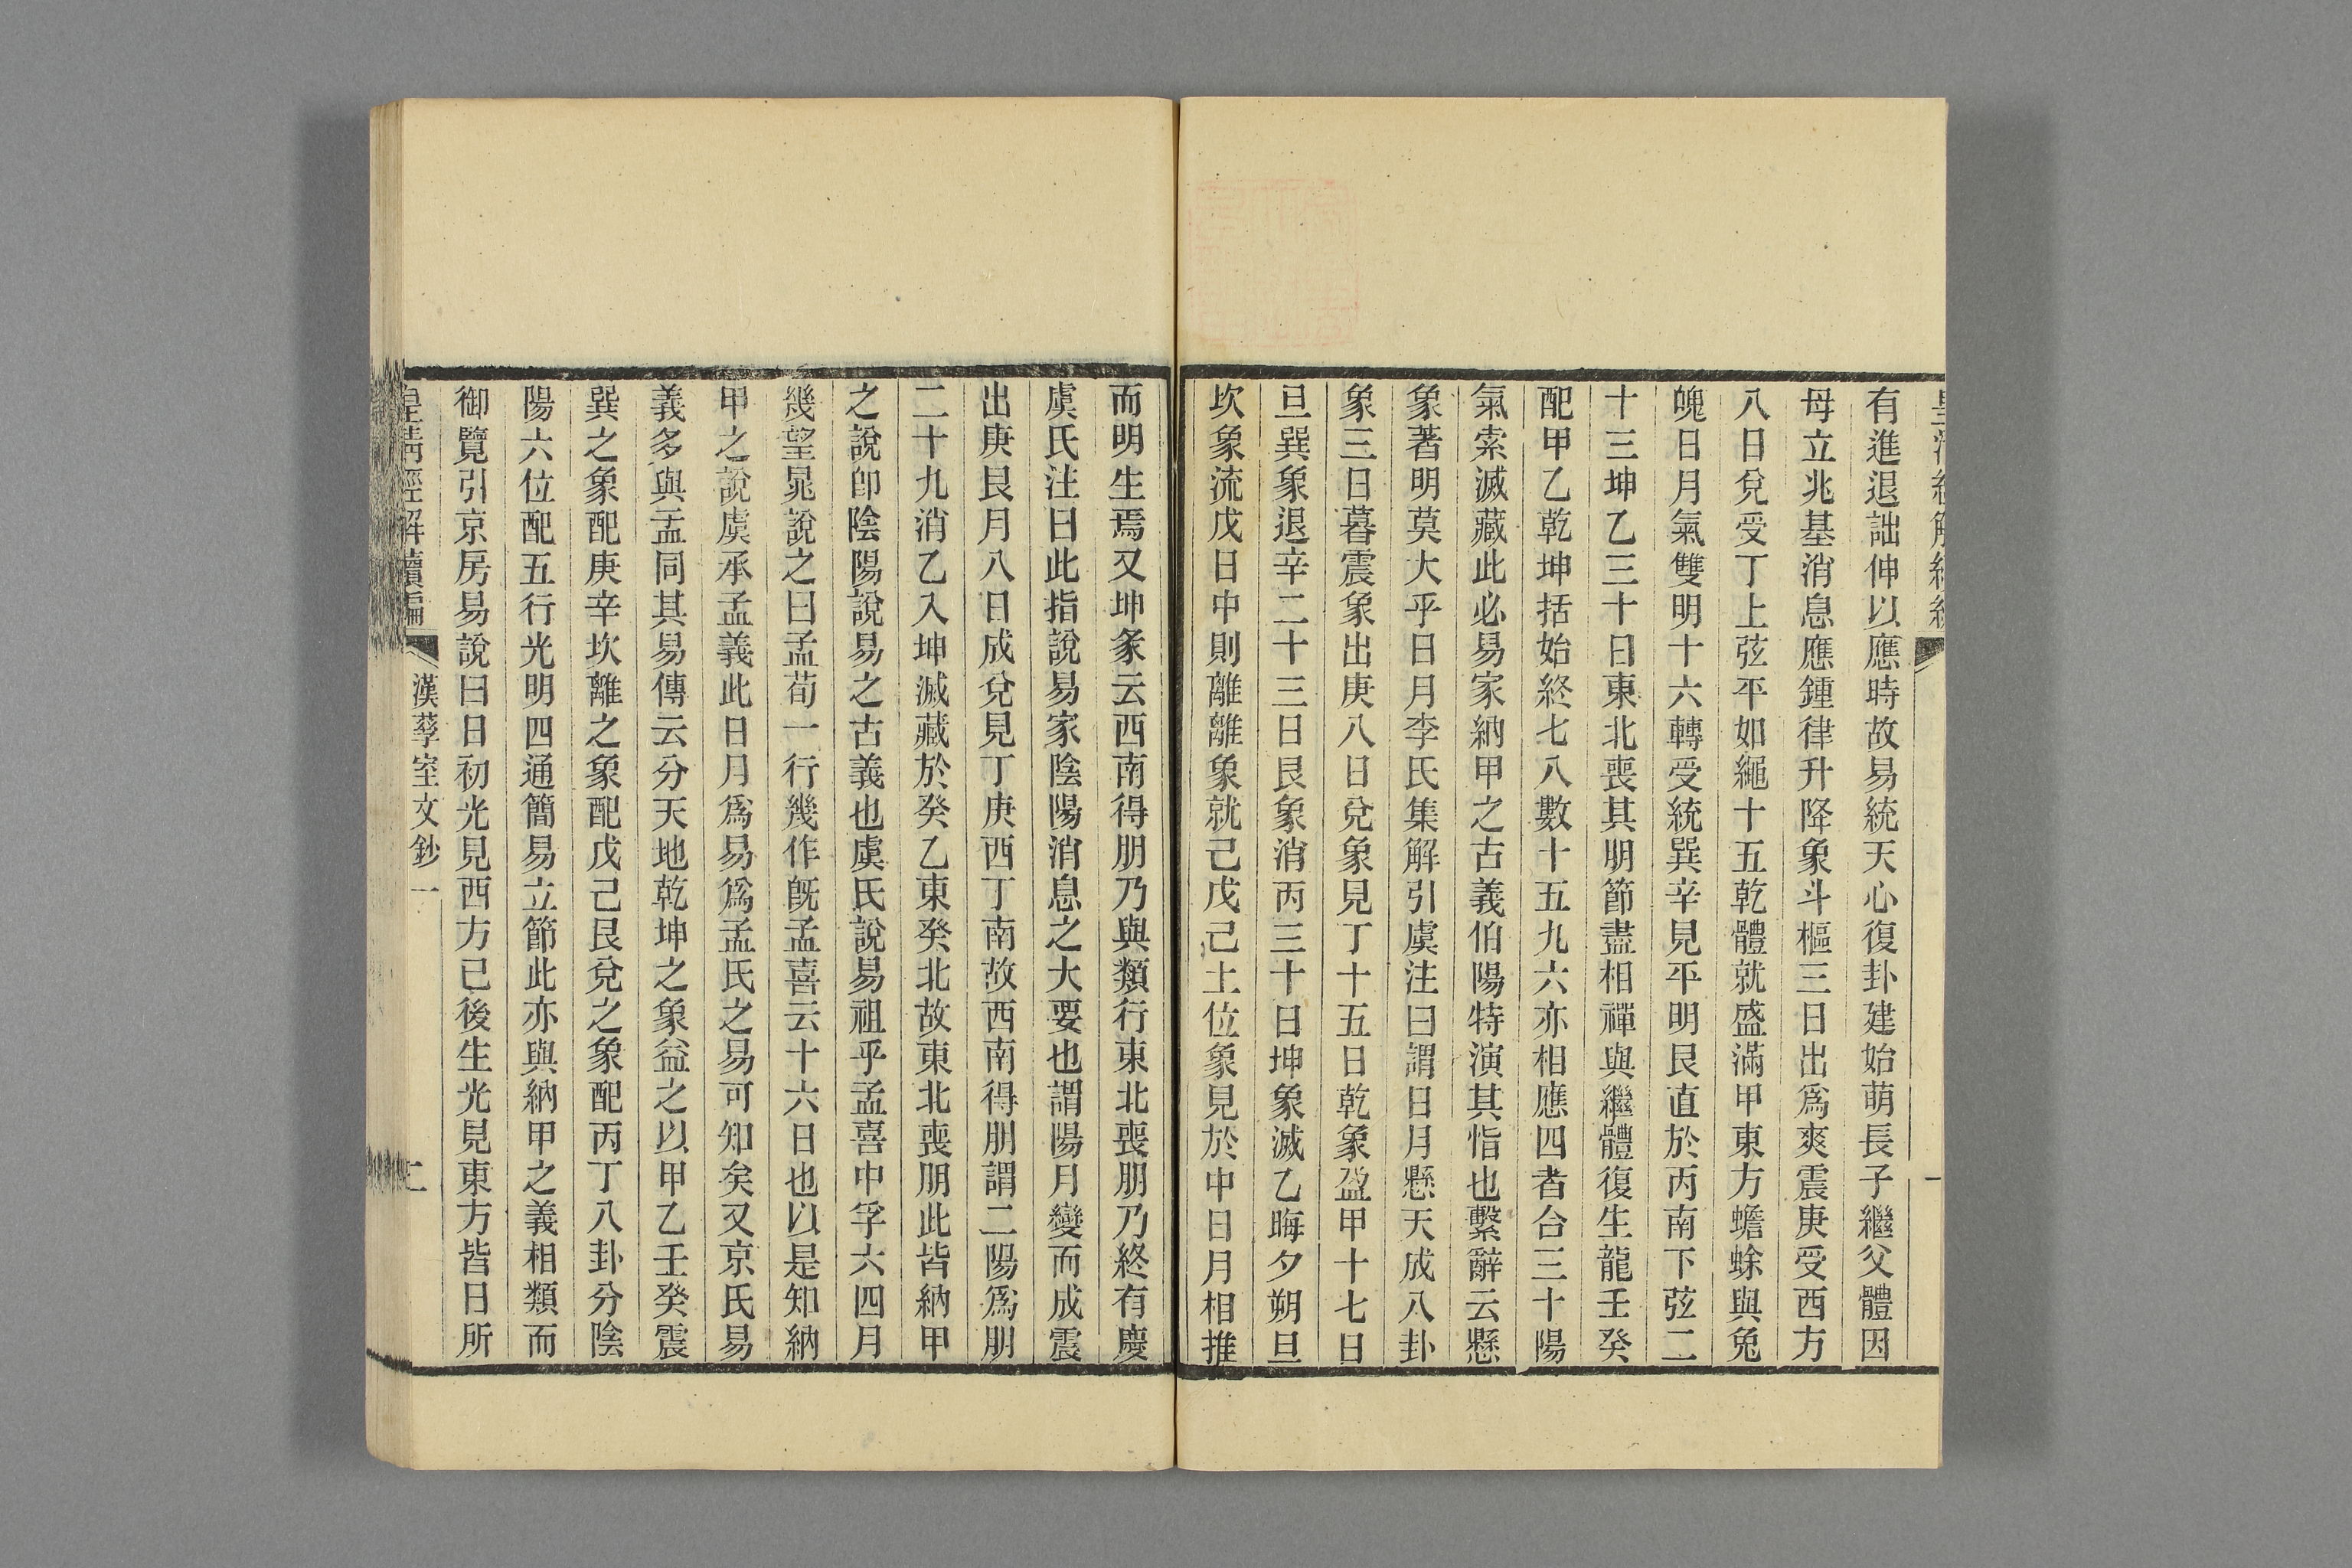 有進退詘伸以應時故易統天心復卦建始萌長子繼父體因
母立兆基消息應鍾律升降象斗樞三日出爲爽震庚受西方
八日兌受丁上弦平如繩十五乾體就盛滿甲東方蟾蜍與兔
魄日月氣雙明十六轉受統巽辛見平明艮直於丙南下弦二
十三坤乙三十日東北喪其朋節盡相禪與繼體復生龍壬癸
配甲乙乾坤括始終七八數十五九六亦相應四者合三十陽
氣索滅藏此必易家納甲之古義伯陽特演其恉也繫辭云懸
象著明莫大乎日月李氏集解引虞注曰謂日月懸天成八卦
象三日暮震象出庚八日兌象見丁十五日乾象盈甲十七日
旦巽象退辛二十三日艮象消丙三十日坤象滅乙晦夕朔旦
坎象流戊日中則離離象就己戊己土位象見於中日月相推
而明生焉又坤彖云西南得朋乃與類行東北喪朋乃終有慶
虞氏注曰此指說易家陰陽消息之大要也謂陽月變而成震
出庚艮月八日成兌見丁庚西丁南故西南得朋謂二陽爲朋
二十九消乙入坤滅藏於癸乙東癸北故東北喪朋此皆納甲
之說卽陰陽說易之古義也虞氏說易祖乎孟喜中孚六四月
幾望晁說之曰孟荀一行幾作旣孟喜云十六日也以是知納
甲之說虞承孟義此日月爲易爲孟氏之易可知矣又京氏易
義多與孟同其易傳云分天地乾坤之象益之以甲乙壬癸震
巽之象配庚辛坎離之象配戊己艮兌之象配丙丁八卦分陰
陽六位配五行光明四通簡易立節此亦與納甲之義相類而
御覽引京房易說曰日初光見西方已後生光見東方皆日所
皇清經解續編 漢孳室文鈔一 二